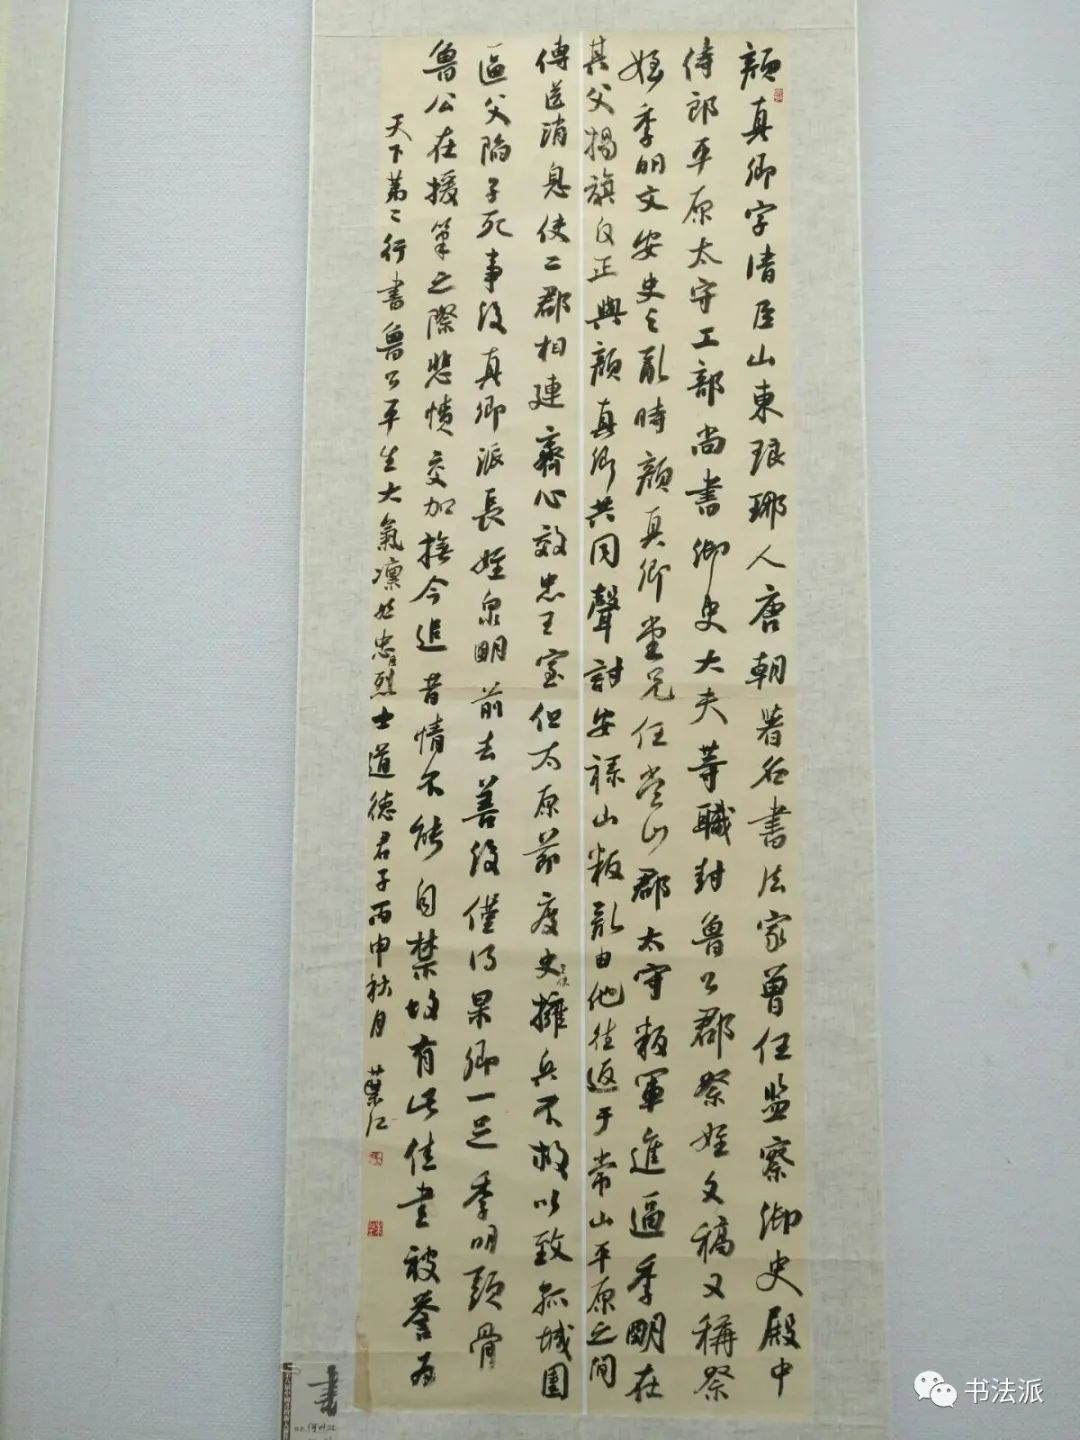 顔真卿字清臣山東琅琊人唐朝著名書法家曾任监察御史殿中
侍郎平原太守工部尚書御史大夫等職封魯公郡祭姪文稿又稱祭
姪季明文安史之亂時顔真卿堂兄任常山郡太守叛軍進逼季明在
其父揭旗反正與顔真卿共同聲討安禄山叛亂由他往返于常山平原之间
傳送消息使二郡相連齊心效忠王室但太原節度史擁兵不救以致孤城圍
逼父陷子死事後真卿派長姪泉明前去善後僅得杲卿一足季明頭骨
魯公在援筆之際悲憤交加撫今追昔情不能自禁故有此佳書被誉为
天下第二行書魯公平生大氣凛然忠烈士道德君子丙申秋月 葉江
書
书法派